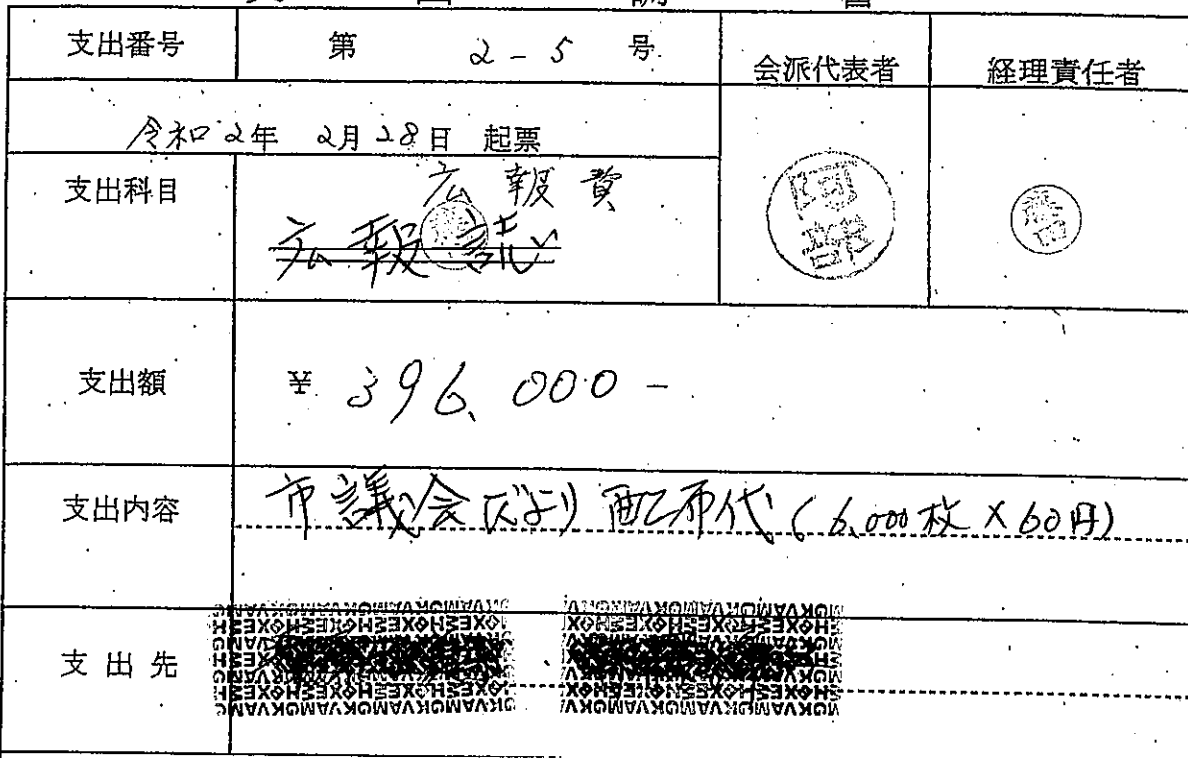 支出番号 第 2-5 号
会派代表者 経理責任者
令和2年 2月28日 起票
支出科目 広報費
広報誌
支出額 ¥396,000-
支出内容 市議会だより配布代(6,000枚×60円)
支出先